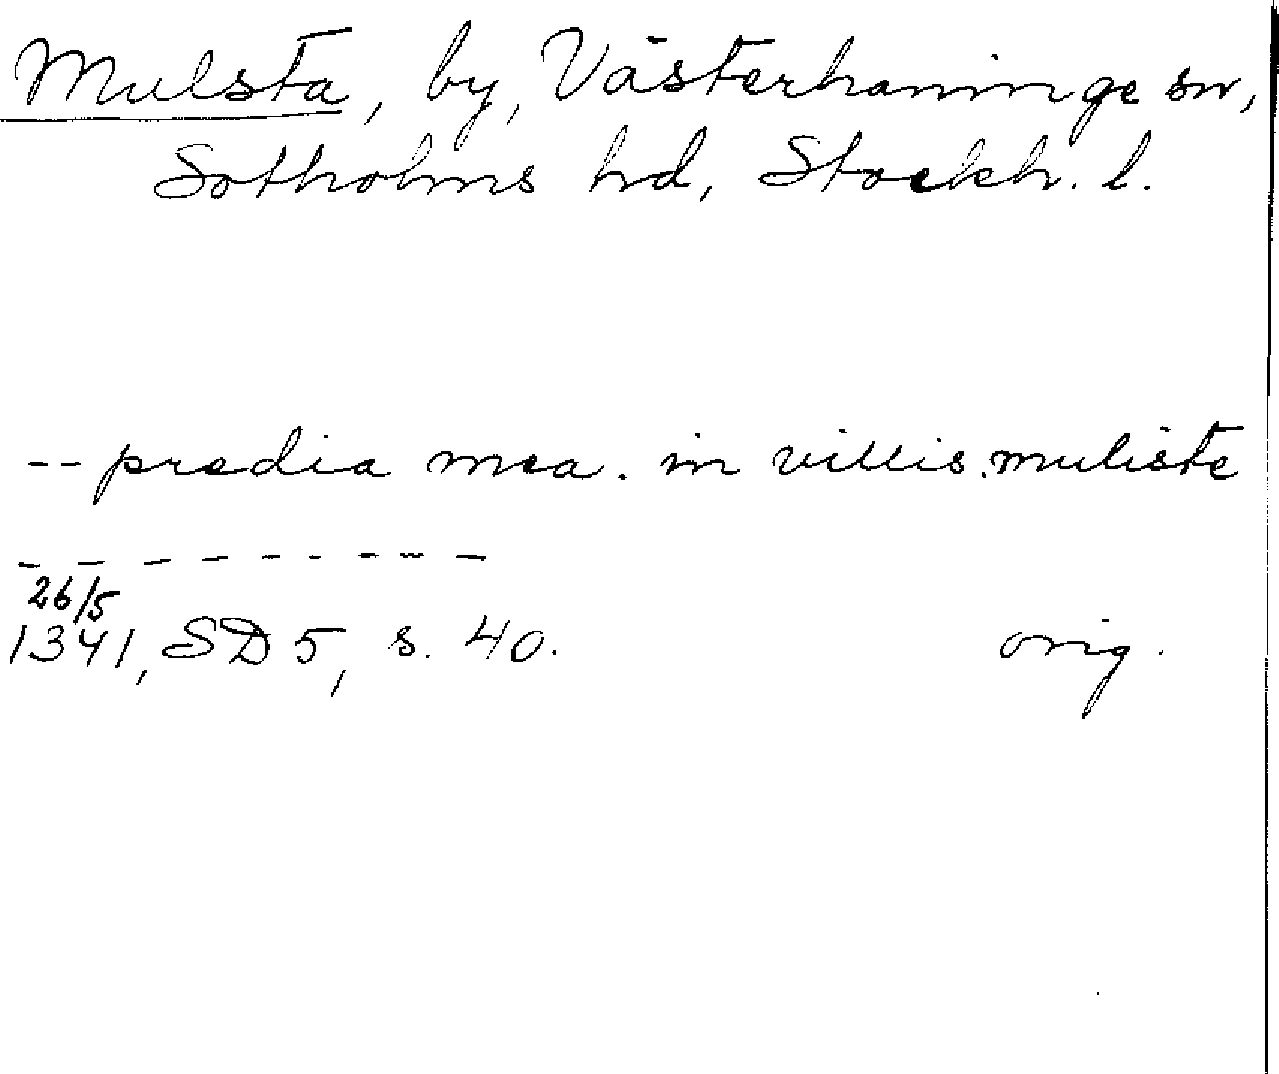 Mulsta, by, Västerhaninge sn,
Sotholms hd, Stockh. l.
-- predia mea. in villis. muliste
- - - - - - - - -
26/5
1341, SD 5, s. 40. orig.